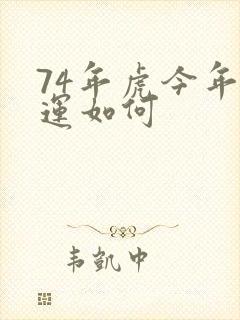 74年虎今年
運如何
韦凱中